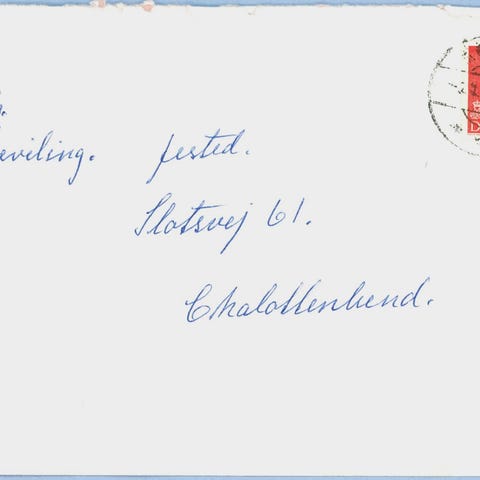 eviling. fested.
Slotsvej 61.
Chalottenlund.